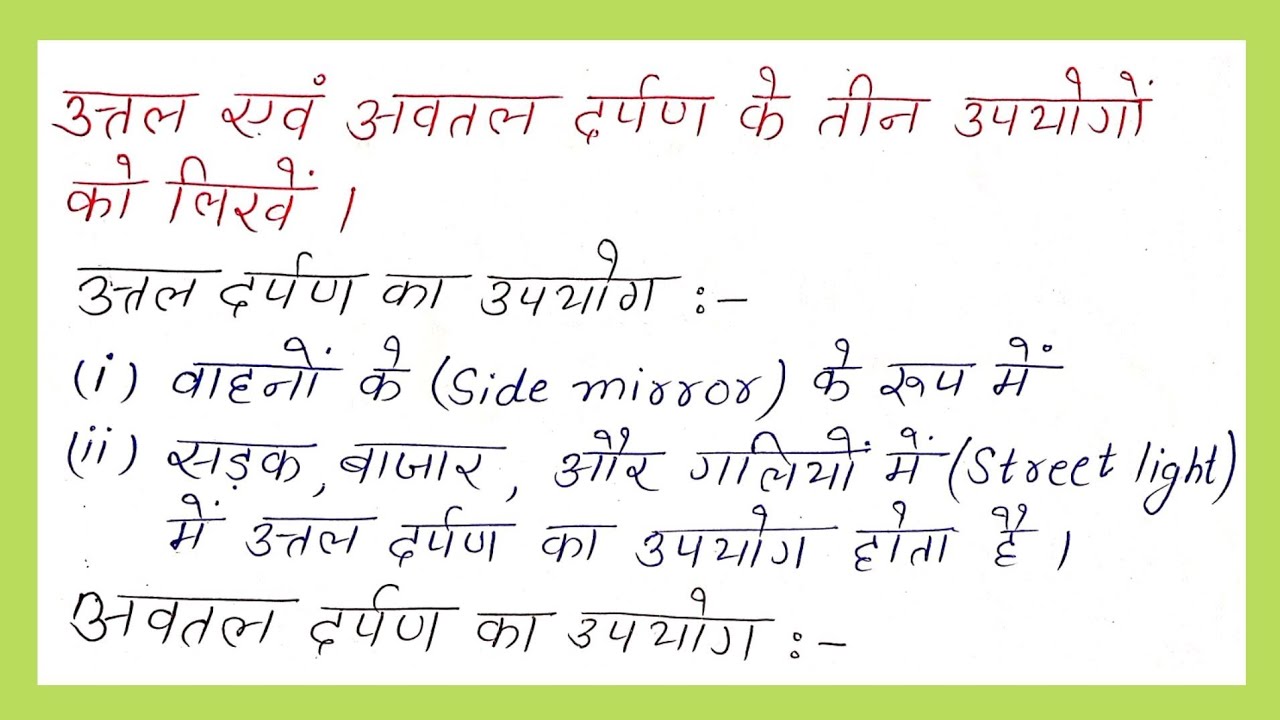 उत्तल एवं अवतल दर्पण के तीन उपयोगों
को लिखें ।
उत्तल दर्पण का उपयोग :-
(i) वाहनों के (Side mirror) के रूप में
(ii) सड़क, बाजार, और गलियों में (Street light)
में उत्तल दर्पण का उपयोग होता है ।
अवतल दर्पण का उपयोग :-